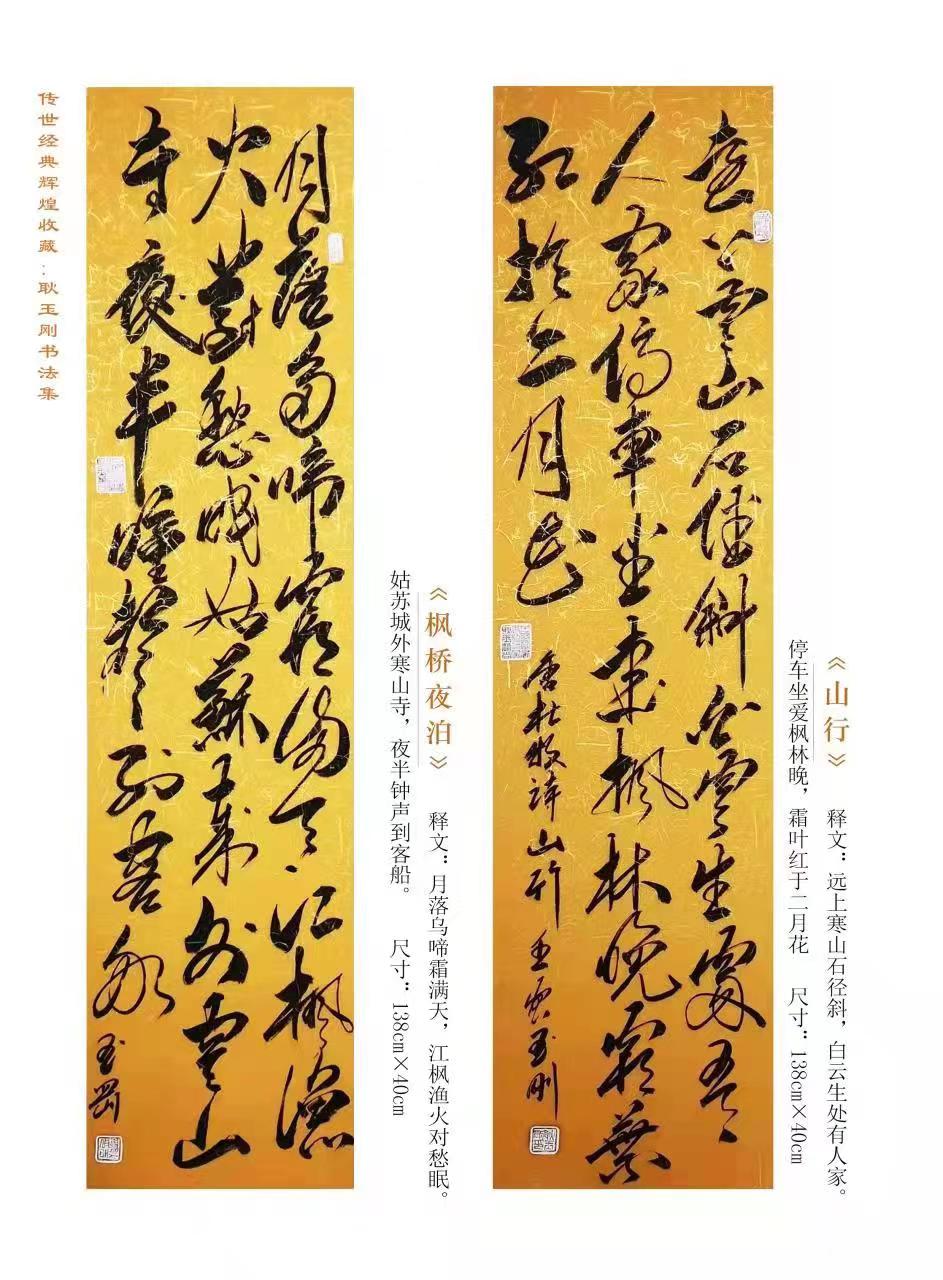 《山行》 释文：远上寒山石径斜，白云生处有人家。
停车坐爱枫林晚，霜叶红于二月花 尺寸：138cm×40cm
遠上寒山石徑斜白雲生處有
人家停車坐愛楓林晚霜葉
紅於二月花
唐杜牧詩山行 玉刚
《枫桥夜泊》 释文：月落乌啼霜满天，江枫渔火对愁眠。
姑苏城外寒山寺，夜半钟声到客船。 尺寸：138cm×40cm
月落烏啼霜滿天江楓漁
火對愁眠姑蘇城外寒山
寺夜半鐘聲到客船
玉
传世经典辉煌收藏：耿玉刚书法集